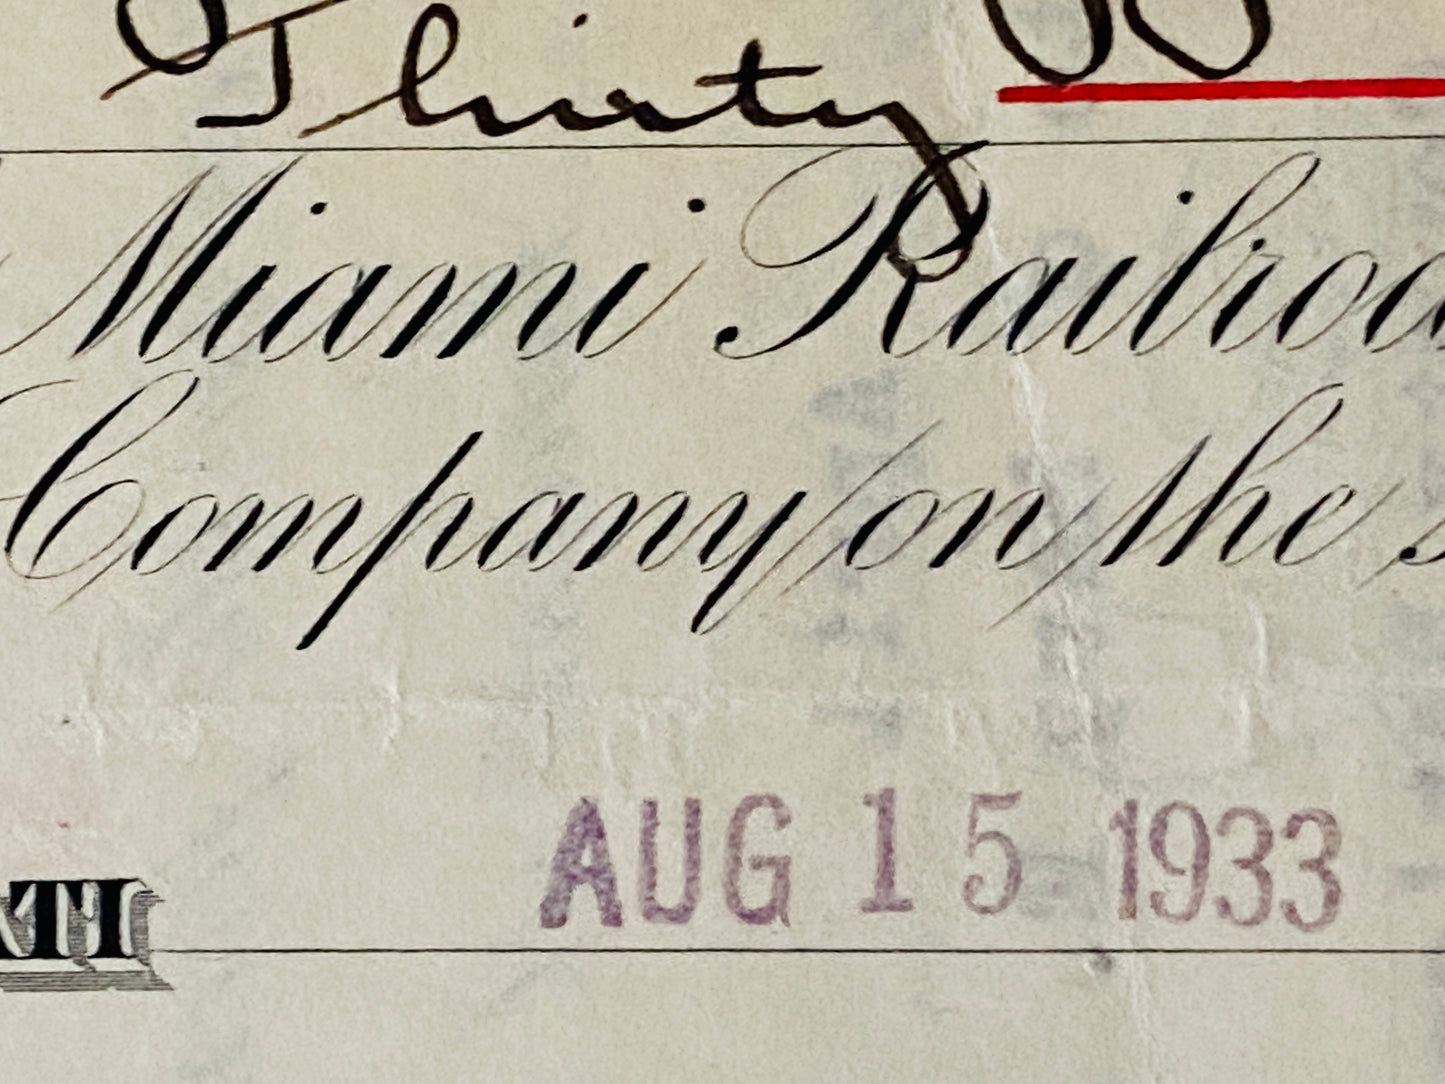 Thirty
Miami Railroa
Company on the
AUG 15 1933
ATI